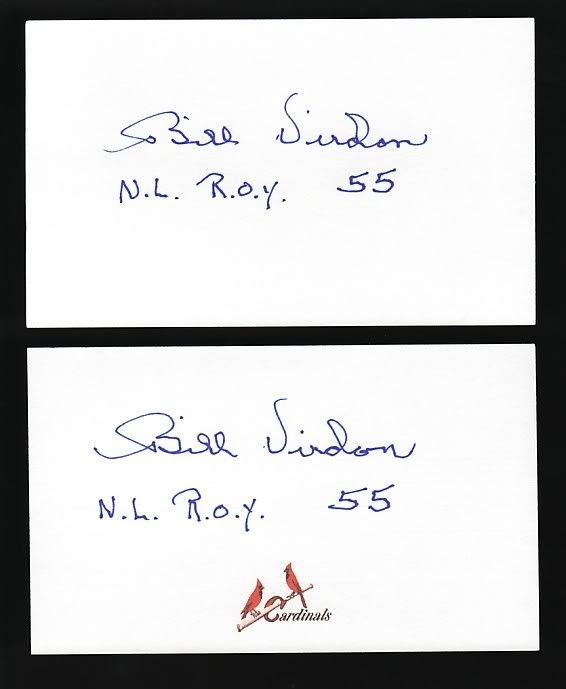 Bill Virdon
N.L. R.O.Y. 55
Bill Virdon
N.L. R.O.Y. 55
Cardinals